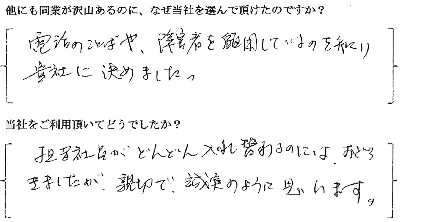 他にも同業が沢山あるのに、なぜ当社を選んで頂けたのですか？
電話のことばや、障害者を雇用しているのを知り
貴社に決めました。
当社をご利用頂いてどうでしたか？
担当社員がどんどん入れ替わるのには、おどろ
きましたが、親切で、誠実のように思います。